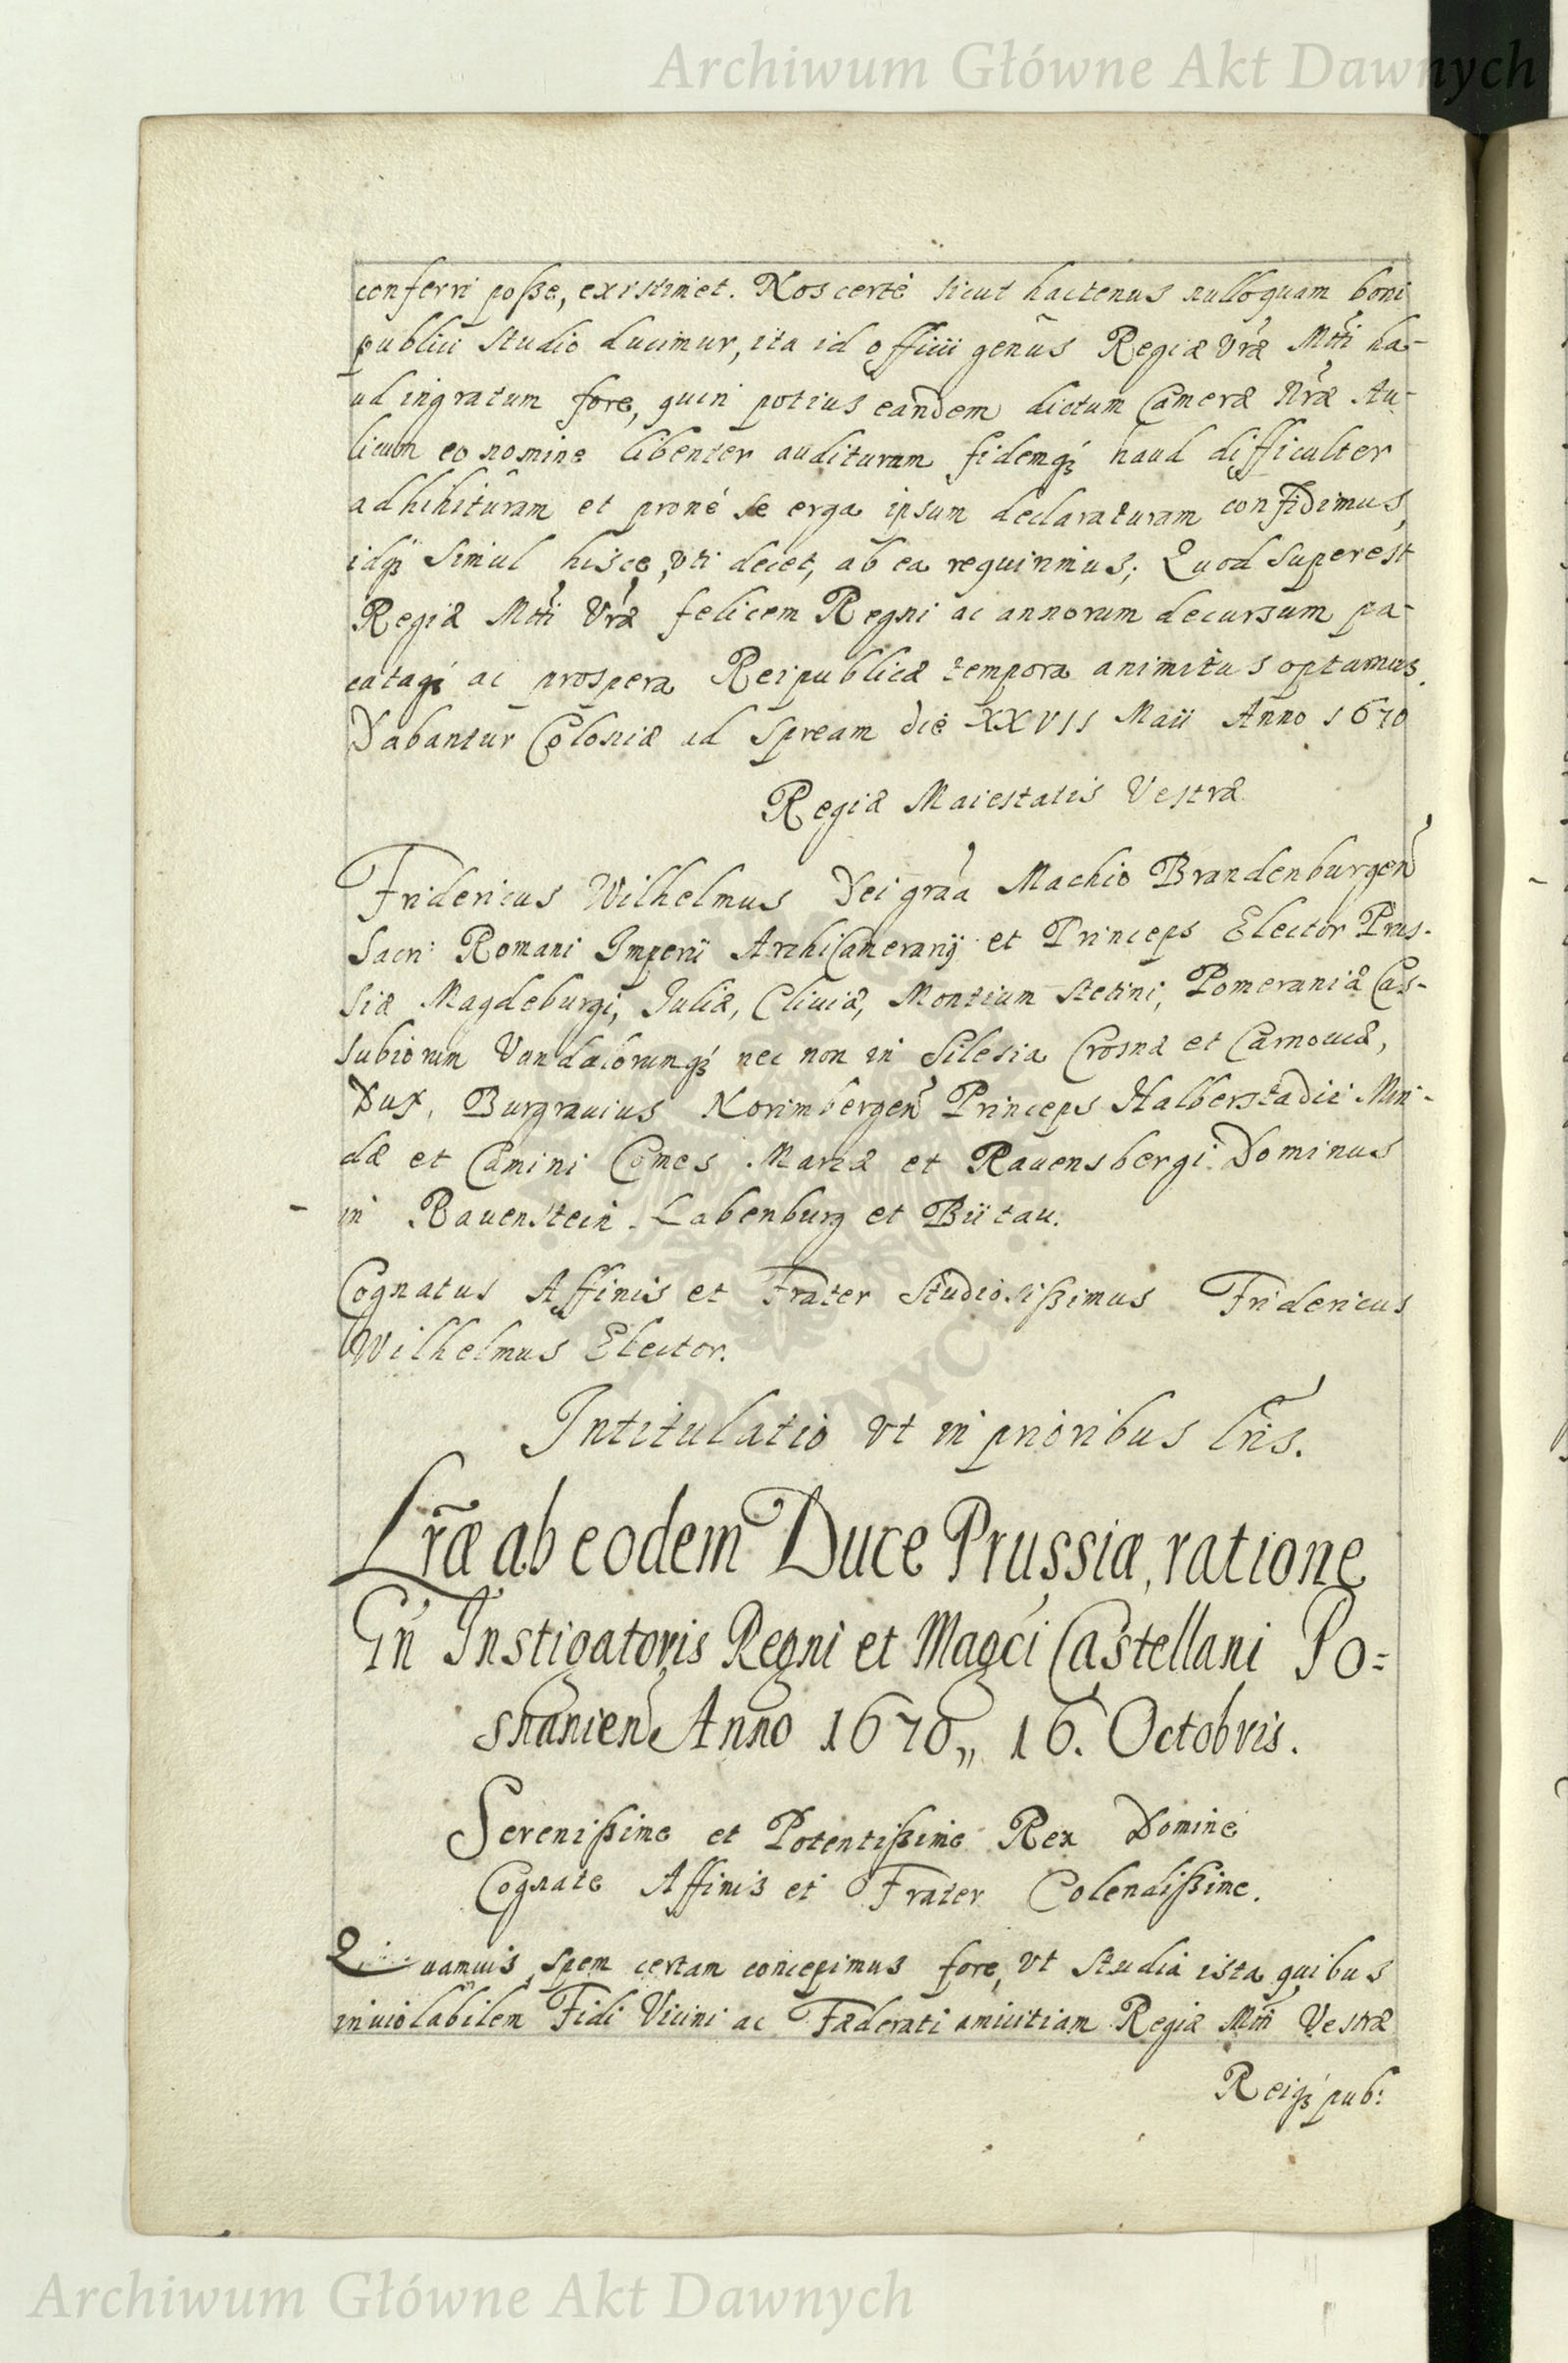 Archiwum Główne Akt Dawnych
conferri poße, existimet. Nos certè sicut hactenus nulloquam boni
publici studio ducimur, ita id officii genus Regiæ Vræ Mtti ha-
ud ingratum fore, quin potius eandem dictum Cameræ Nræ Au-
licum eo nomine libenter audituram fidemqʒ haud difficulter
adhibituram et pronè se erga ipsum declaraturam confidimus,
idqʒ simul hisce, vti decet, ab ea requirimus; Quod superest
Regiæ Mtti Vræ felicem Regni ac annorum decursum pa-
cataqʒ ac prospera Reipublicæ tempora animitus optamus.
Dabantur Coloniæ ad Spream die XXVII Maii Anno 1670
Regiæ Maiestatis Vestræ
Fridericus Wilhelmus Dei graa Machio Brandenburgen
Sacri: Romani Imperii ArchiCamerarij et Princeps Elector Prus-
siæ Magdeburgi, Juliæ, Cliuiæ, Montium Stetini, Pomeraniæ Cas-
subiorum Vandalorumqʒ nec non in Silesia Crosnæ et Carnouiæ,
Dux, Burgrauius Norimbergen Princeps Halberstadii Min-
dæ et Camini Comes Marcæ et Rauensbergi Dominus
in Rauenstein Labenburg et Bütau.
Cognatus Affinis et Frater Studiosißimus Fridericus
Wilhelmus Elector.
Intitulatio vt in prioribus lris.
Lræ ab eodem Duce Prussiæ, ratione
Gn Instigatoris Regni et Magci Castellani Po=
snanien Anno 1670,, 16. Octobris.
Serenißime et Potentißime Rex Domine
Cognate Affinis et Frater Colendißime.
Quamuis spem certam concepimus fore, vt studia ista quibus
inuiolabilem Fidi Vicini ac Fæderati amicitiam Regiæ Mtti Vestræ
Reiqʒ pub:
Archiwum Główne Akt Dawnych